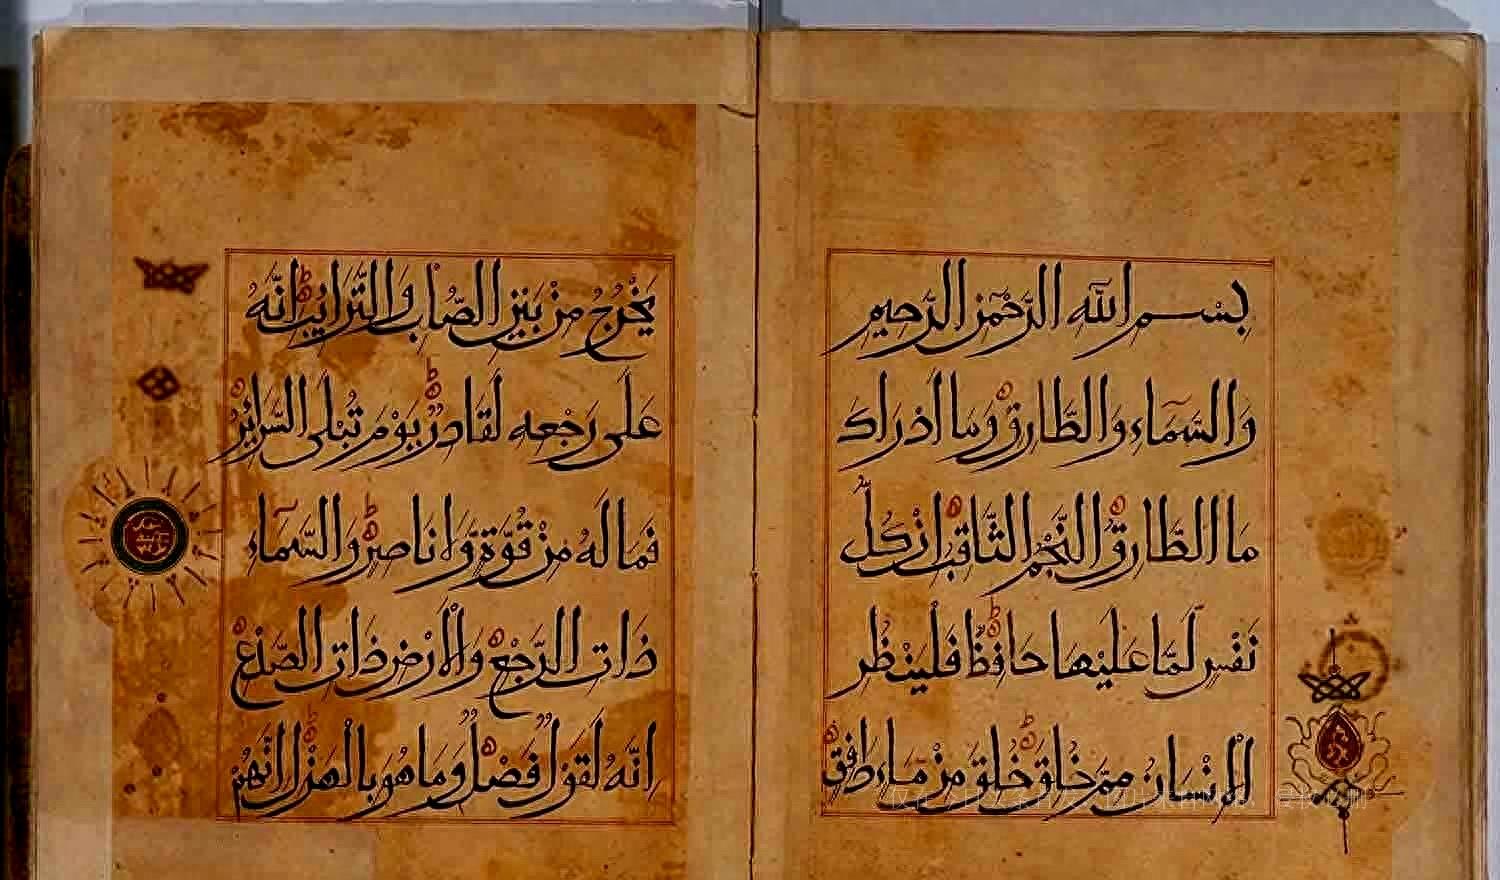 بِسْمِ اللّٰهِ الرَّحْمٰنِ الرَّحِيمِ
وَالسَّمَآءِ وَالطَّارِقِ وَمَا اَدْرَاكَ
مَا الطَّارِقُ النَّجْمُ الثَّاقِبُ اِنْ كُلُّ
نَفْسٍ لَمَّا عَلَيْهَا حَافِظٌ فَلْيَنْظُرِ
الْاِنْسَانُ مِمَّ خُلِقَ خُلِقَ مِنْ مَاءٍ دَافِقٍ
يَخْرُجُ مِنْ بَيْنِ الصُّلْبِ وَالتَّرَايِبِ اِنَّهُ
عَلَى رَجْعِهِ لَقَادِرٌ يَوْمَ تُبْلَى السَّرَائِرُ
فَمَا لَهُ مِنْ قُوَّةٍ وَلَا نَاصِرٍ وَالسَّمَآءِ
ذَاتِ الرَّجْعِ وَالْاَرْضِ ذَاتِ الصَّدْعِ
اِنَّهُ لَقَوْلٌ فَصْلٌ وَمَا هُوَ بِالْهَزْلِ اِنَّهُمْ